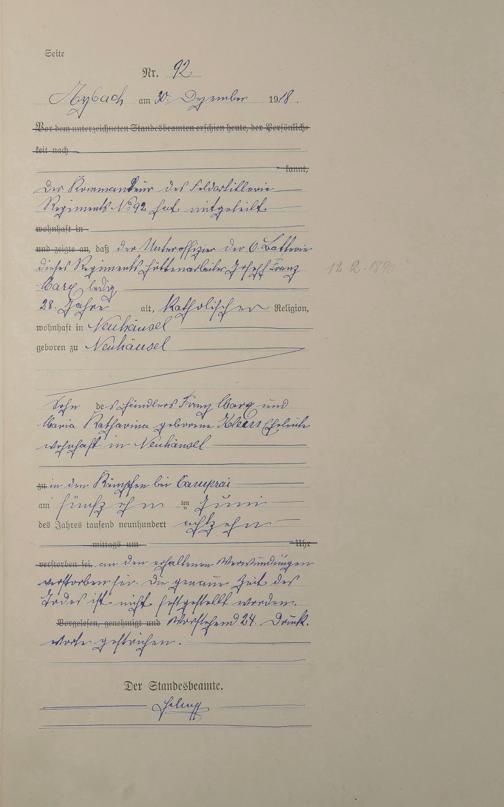 Seite
Nr. 92
am 20. Dezember 1918.
Vor dem unterzeichneten Standesbeamten erschien heute, der Persönlich-
keit nach
kannt,
Der Kommandeur des Feldartillerie
Regiments No 92 hat mitgeteilt
wohnhaft in
und zeigte an, daß der Unteroffizier der 6. Batterie
dieses Regiments Hüttenarbeiter Joseph Franz
ledig
28 Jahre alt, katholischen Religion,
wohnhaft in Neuhäusel
geboren zu Neuhäusel
Sohn des Händlers Franz und
Maria Katharina geborene Eheleute
wohnhaft in Neuhäusel
zu in den Kämpfen bei Camprai
am fünfzehn ten Juni
des Jahres tausend neunhundert achtzehn
mittags um Uhr
verstorben sei. an den erhaltenen Verwundungen
verstorben sei. Die genaue Zeit des
Todes ist nicht festgestellt worden.
Vorgelesen, genehmigt und Vorstehend 24 Druck-
worte gestrichen.
Der Standesbeamte.